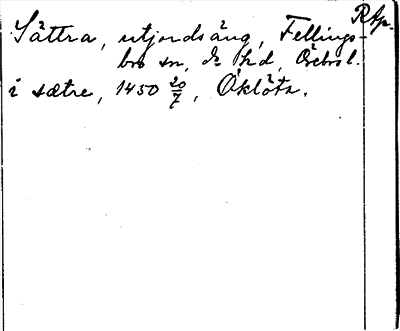 R Ap.
Sättra, utjordsäng, Fellings-
bro sn, do hd, Örebro l.
i sætre, 1450 20/7, Öklöta.